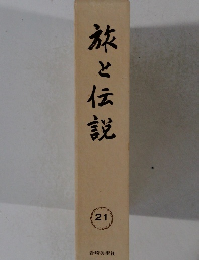 旅と伝説
21